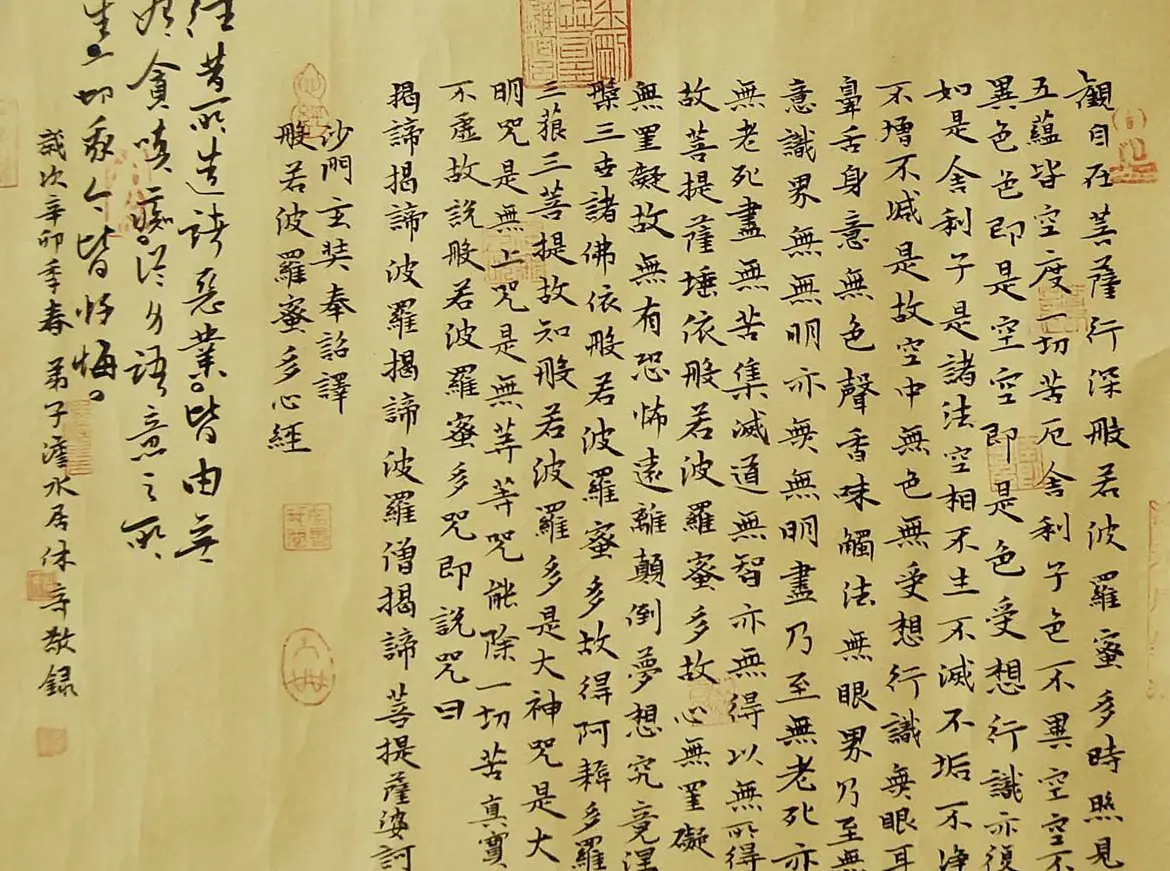 觀自在菩薩行深般若波羅蜜多時照見
五蘊皆空度一切苦厄舍利子色不異空空不
異色色即是空空即是色受想行識亦復
如是舍利子是諸法空相不生不滅不垢不淨
不增不減是故空中無色無受想行識無眼耳
鼻舌身意無色聲香味觸法無眼界乃至無
意識界無無明亦無無明盡乃至無老死亦
無老死盡無苦集滅道無智亦無得以無所得
故菩提薩埵依般若波羅蜜多故心無罣礙
無罣凝故無有恐怖遠離顛倒夢想究竟涅
槃三世諸佛依般若波羅蜜多故得阿耨多羅
三藐三菩提故知般若波羅多是大神咒是大
明咒是無上咒是無等等咒能除一切苦真實
不虛故說般若波羅蜜多咒即說咒曰
揭諦揭諦波羅揭諦波羅僧揭諦菩提薩婆訶
沙門玄奘奉詔譯
般若波羅蜜多心經
往昔所造諸惡業。皆由無
始貪嗔癡。從身語意之所
生。一切我今皆懺悔。
歲次辛卯季春 弟子澹水居休敬録